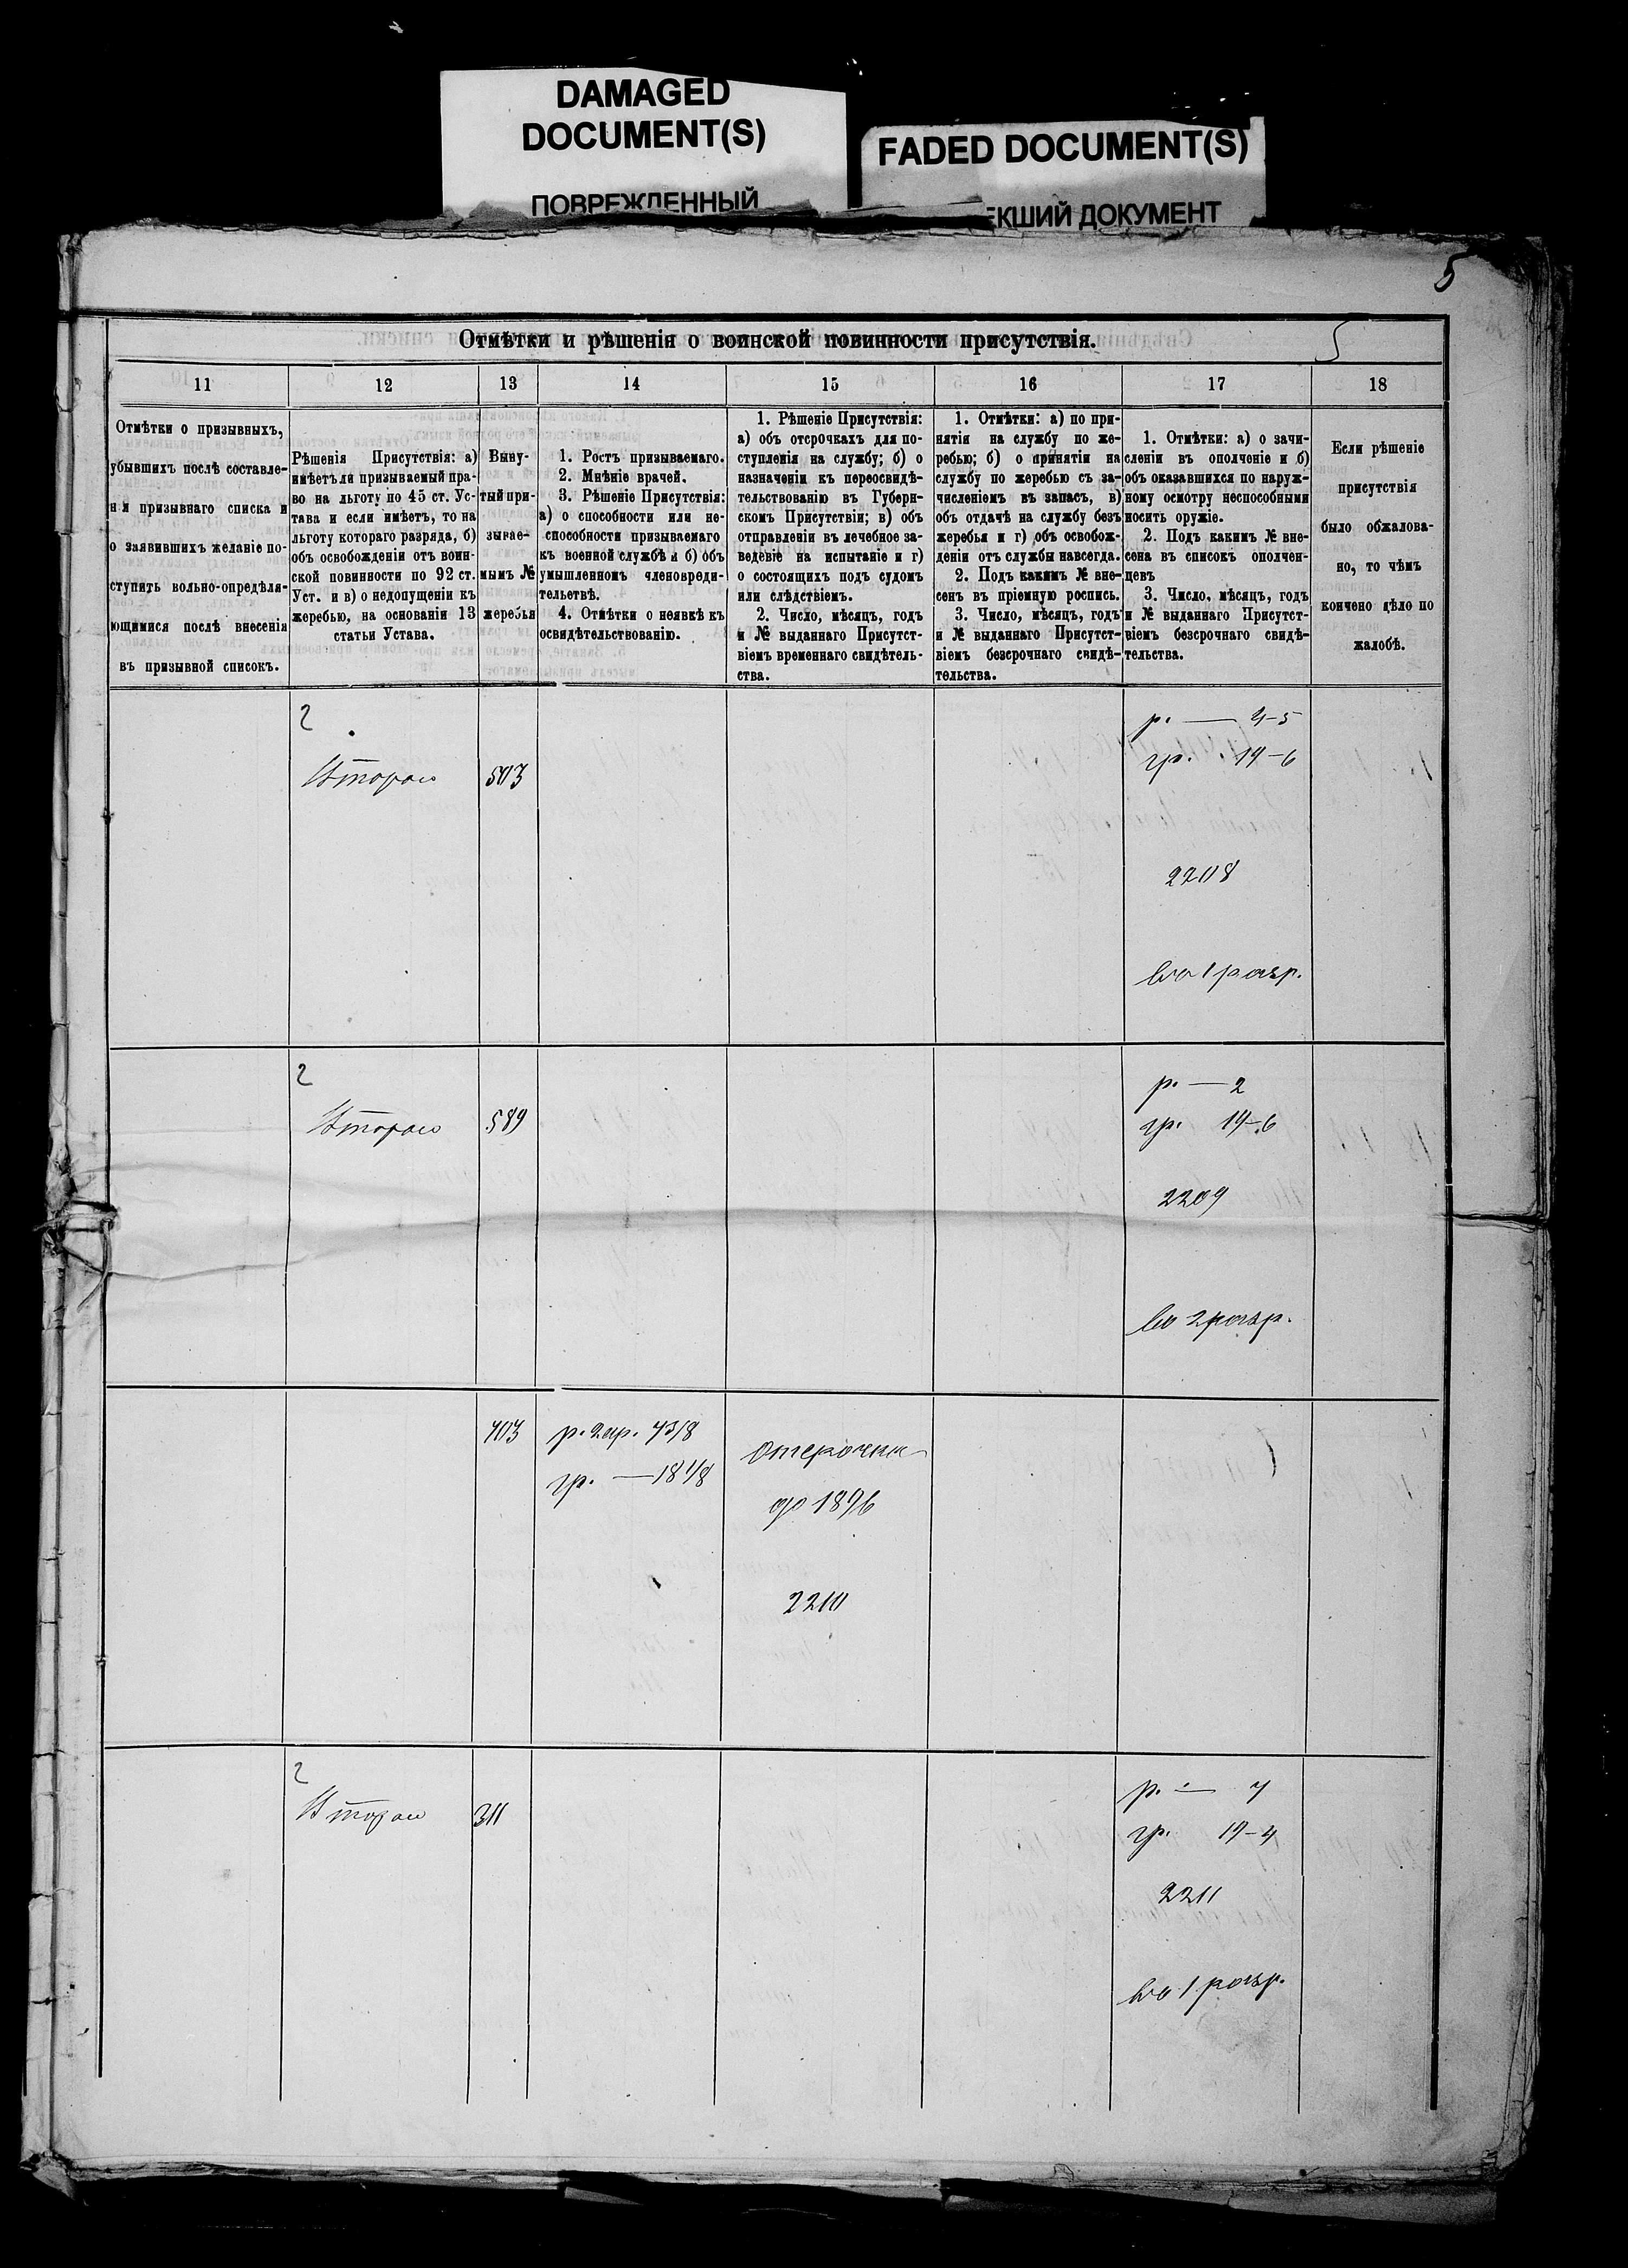 DAMAGED
DOCUMENT(S)
ПОВРЕЖДЕННЫЙ
FADED DOCUMENT(S)
ЕКШИЙ ДОКУМЕНТ
5
Отмѣтки и рѣшенія о воинской повинности присутствія.
5
11
12
13
14
15
16
17
18
Отмѣтки о призывныхъ,
убывшихъ послѣ составле-
нія призывнаго списка и
о заявившихъ желаніе по-
ступить вольно-опредѣля-
ющимися послѣ внесенія
въ призывной список.
Рѣшенія Присутствія: а)
имѣетъ ли призываемый пра-
во на льготу по 45 ст. Ус-
тава и если имѣетъ, то на
льготу котораго разряда, б)
объ освобожденіи отъ воин-
ской повинности по 92 ст.
Уст. и в) о недопущеніи къ
жеребью, на основаніи 13
статьи Устава.
Выну-
тый при-
зывае-
мымъ №
жеребья
1. Ростъ призываемаго.
2. Мнѣніе врачей.
3. Рѣшеніе Присутствія:
а) о способности или не-
способности призываемаго
къ военной службѣ и б) объ
умышленномъ членовреди-
тельствѣ.
4. Отмѣтки о неявкѣ къ
освидѣтельствованію.
1. Рѣшеніе Присутствія:
а) объ отсрочкахъ для по-
ступленія на службу; б) о
назначеніи къ переосвидѣ-
тельствованію въ Губерн-
скомъ Присутствіи; в) объ
отправленіи въ лечебное за-
веденіе на испытаніе и г)
о состоящихъ подъ судомъ
или слѣдствіемъ.
2. Число, мѣсяцъ, годъ
и № выданнаго Присутст-
віемъ временнаго свидѣтель-
ства.
1. Отмѣтки: а) по при-
нятіи на службу по же-
ребью; б) о принятіи на
службу по жеребью съ за-
численіемъ въ запасъ, в)
объ отдачѣ на службу безъ
жеребья и г) объ освобож-
деніи отъ службы навсегда.
2. Подъ какимъ № вне-
сенъ въ пріемную роспись.
3. Число, мѣсяцъ, годъ
и № выданнаго Присутст-
віемъ безсрочнаго свидѣ-
тельства.
1. Отмѣтки: а) о зачи-
сленіи въ ополченіе и б)
объ оказавшихся по наруж-
ному осмотру неспособными
носить оружіе.
2. Подъ какимъ № вне-
сена въ списокъ ополчен-
цевъ
3. Число, мѣсяцъ, годъ
и № выданнаго Присутст-
віемъ безсрочнаго свидѣ-
тельства.
Если рѣшеніе
присутствія
было обжалова-
но, то чѣмъ
кончено дѣло по
жалобѣ.
2
Второго
503
р. — 4-5
гр. 19-6
2208
во 1 разр.
2
Второго
589
р. — 2
гр. 19-6
2209
во 2 разр.
403
гр.
Отсрочка
до 1896
2210
2
Второго
311
р. — 4
гр. 19-4
2211
во 1 разр.